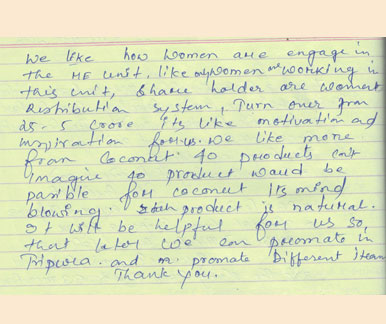 We like how women are engage in
the ME unit. like my women are working in
this unit, Share holder are women
Distribution system, Turn over from
is 5 Crore its like motivation ad
inspiration for us. We like more
from Coconut 40 products can't
imagine 40 product would be
possible for coconut its mind
blowing. Each product is natural.
It will be helpful for us so,
that later we can promote in
Tripura. and promate Different item
Thank You.